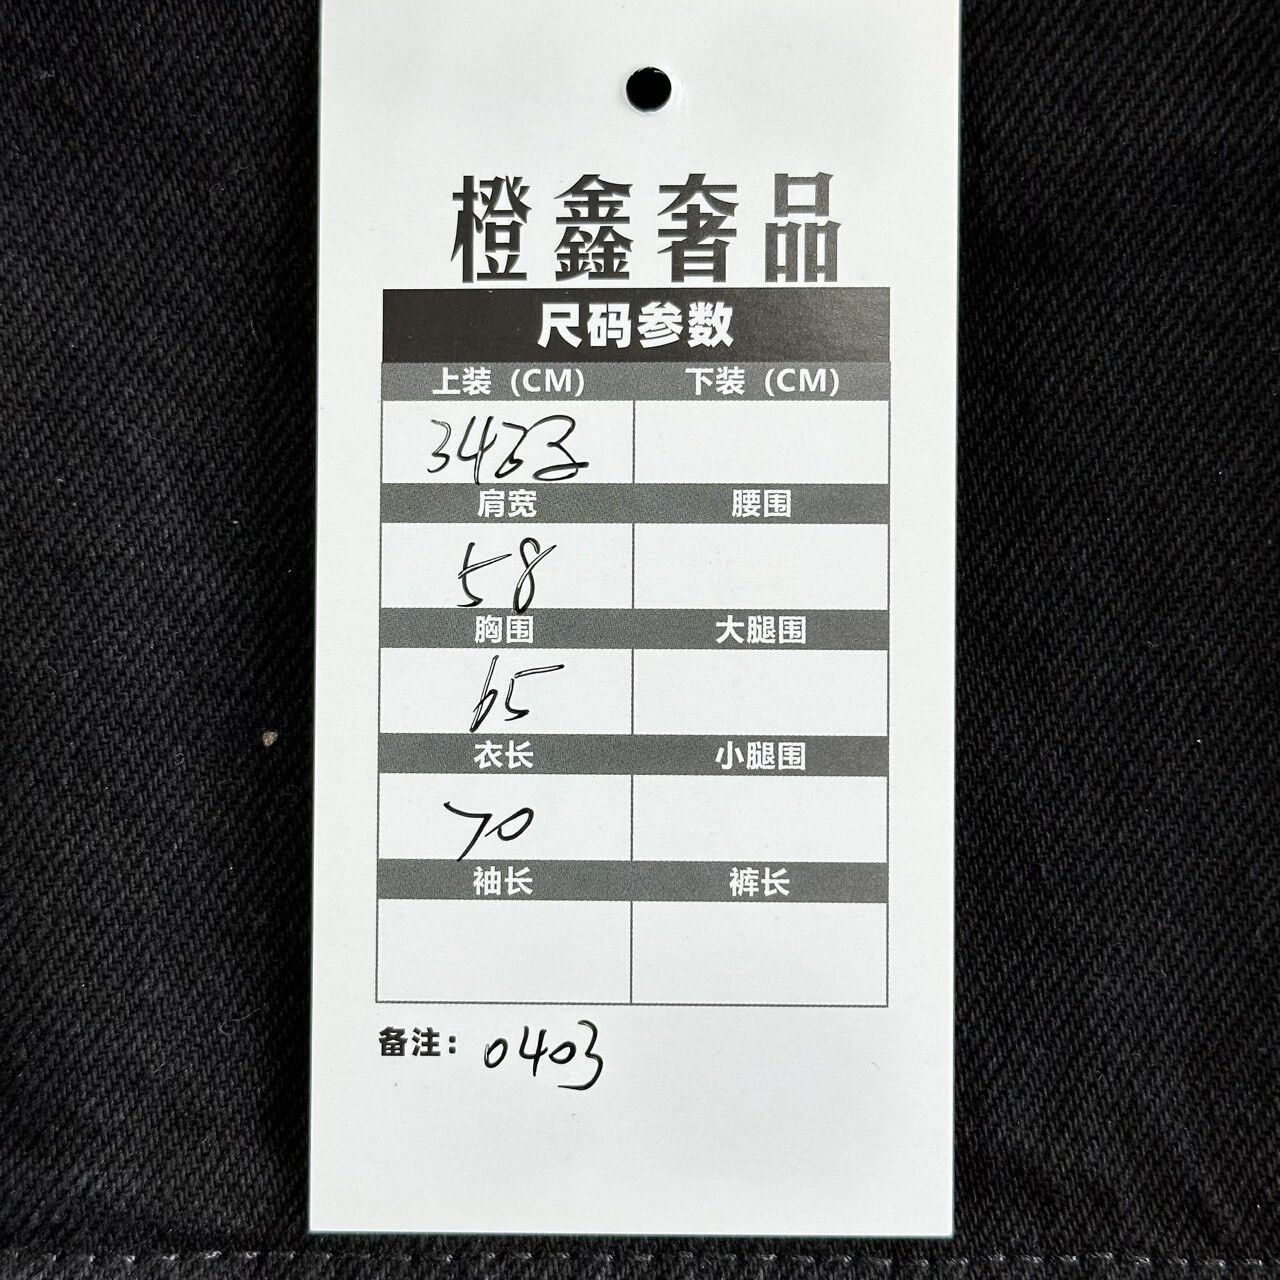 橙鑫奢品
尺码参数
上装（CM） 下装（CM）
肩宽 腰围
58
胸围 大腿围
65
衣长 小腿围
70
袖长 裤长
备注： 0403